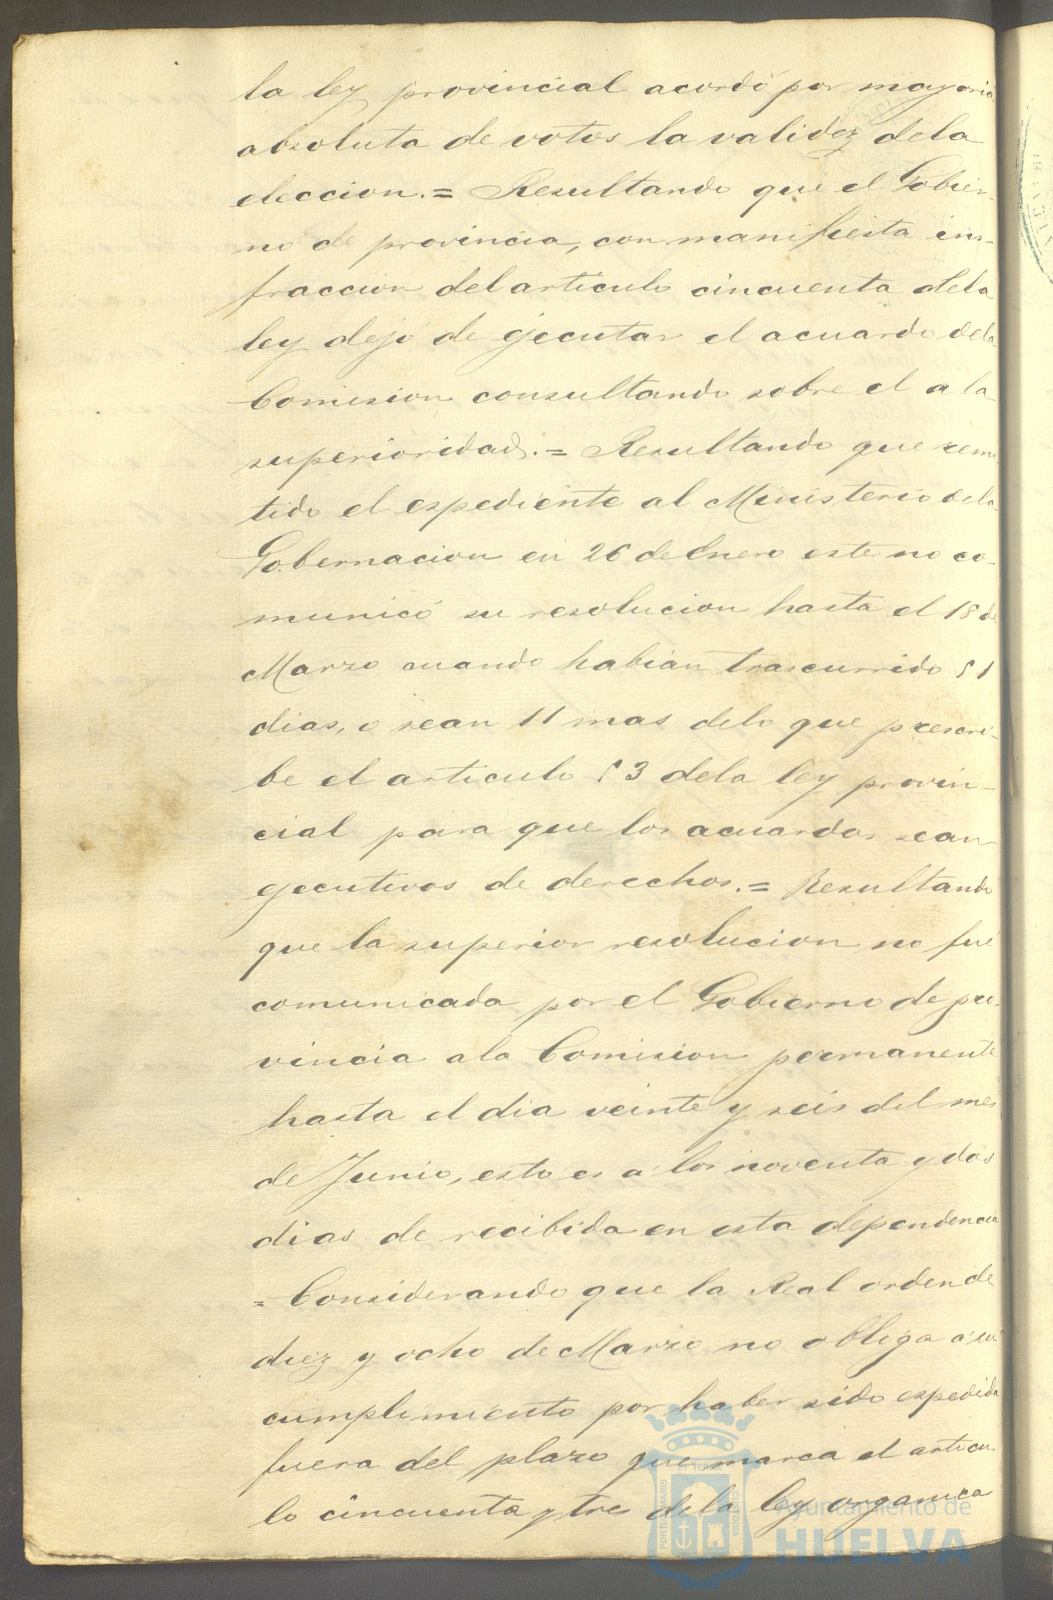 la ley provincial acordó por mayoria
absoluta de votos la validez dela
eleccion.= Resultando que el Gobier-
no de provincia, con manifiesta in-
fraccion del articulo cincuenta dela
ley dejó de ejecutar el acuerdo dela
Comision consultando sobre el a la
superioridad.= Resultando que remi
tido el espediente al Ministerio dela
Gobernacion en 26 de Enero este no co-
municó su resolucion hasta el 18 de
Marzo cuando habian trascurrido 51
dias, o sean 11 mas delo que prescri-
be el articulo 53 dela ley provin-
cial para que los acuerdos sean
ejecutivos de derechos.= Resultando
que la superior resolucion no fué
comunicada por el Gobierno de pro-
vincia ala Comision permanente
hasta el dia veinte y seis del mes
de Junio, esto es a los noventa y dos
dias de recibida en esta dependencia
= Considerando que la Real orden de
diez y ocho de Marzo no obliga a su
cumplimiento por haber sido espedida
fuera del plazo que marca el articu
lo cincuenta y tres dela ley organica
Ayuntamiento de
HUELVA